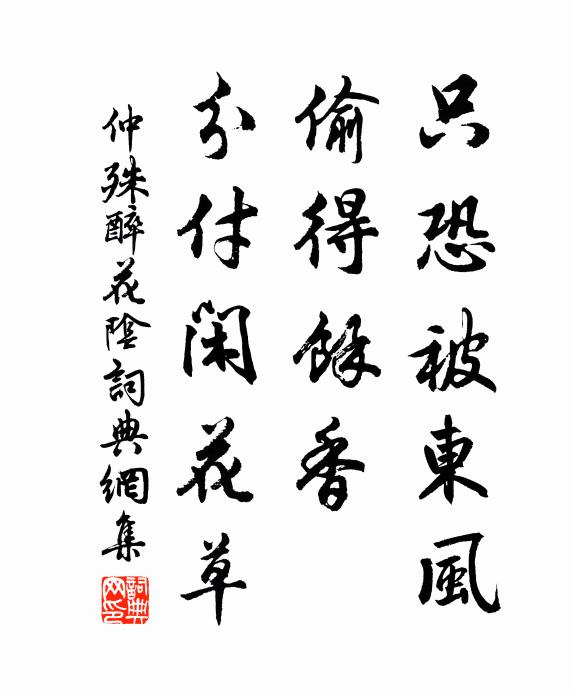 只恐被東風
偷得餘香
分付閑花草
仲殊醉花陰詞典網集
詞典
网印